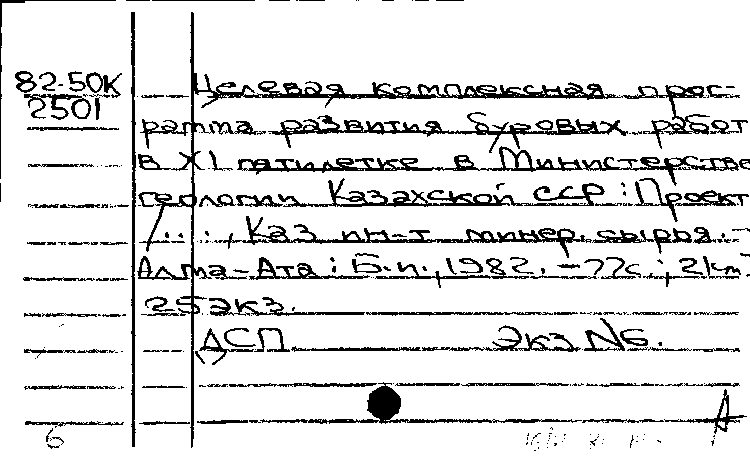 82-50К
2501
Целевая комплексная прог-
рамма развития буровых работ
в XI пятилетке в Министерстве
геологии Казахской ССР : Проект
/..., Каз ин-т минер. сырья. -
Алма-Ата : Б.и., 1982. - 77с.;
25экз.
ДСП. Экз N6.
6